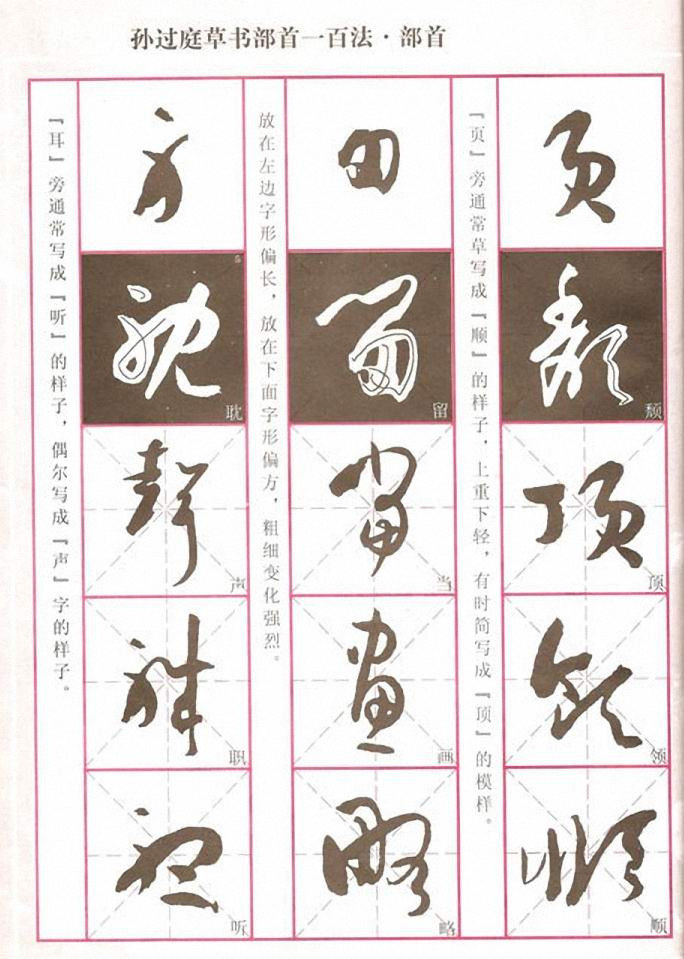 孙过庭草书部首一百法·部首
页
颓
顶
领
顺
『页』旁通常草写成『顺』的样子，上重下轻，有时简写成『顶』的模样。
田
留
当
画
略
放在左边字形偏长，放在下面字形偏方，粗细变化强烈。
耳
耽
声
职
听
『耳』旁通常写成『听』的样子，偶尔写成『声』字的样子。